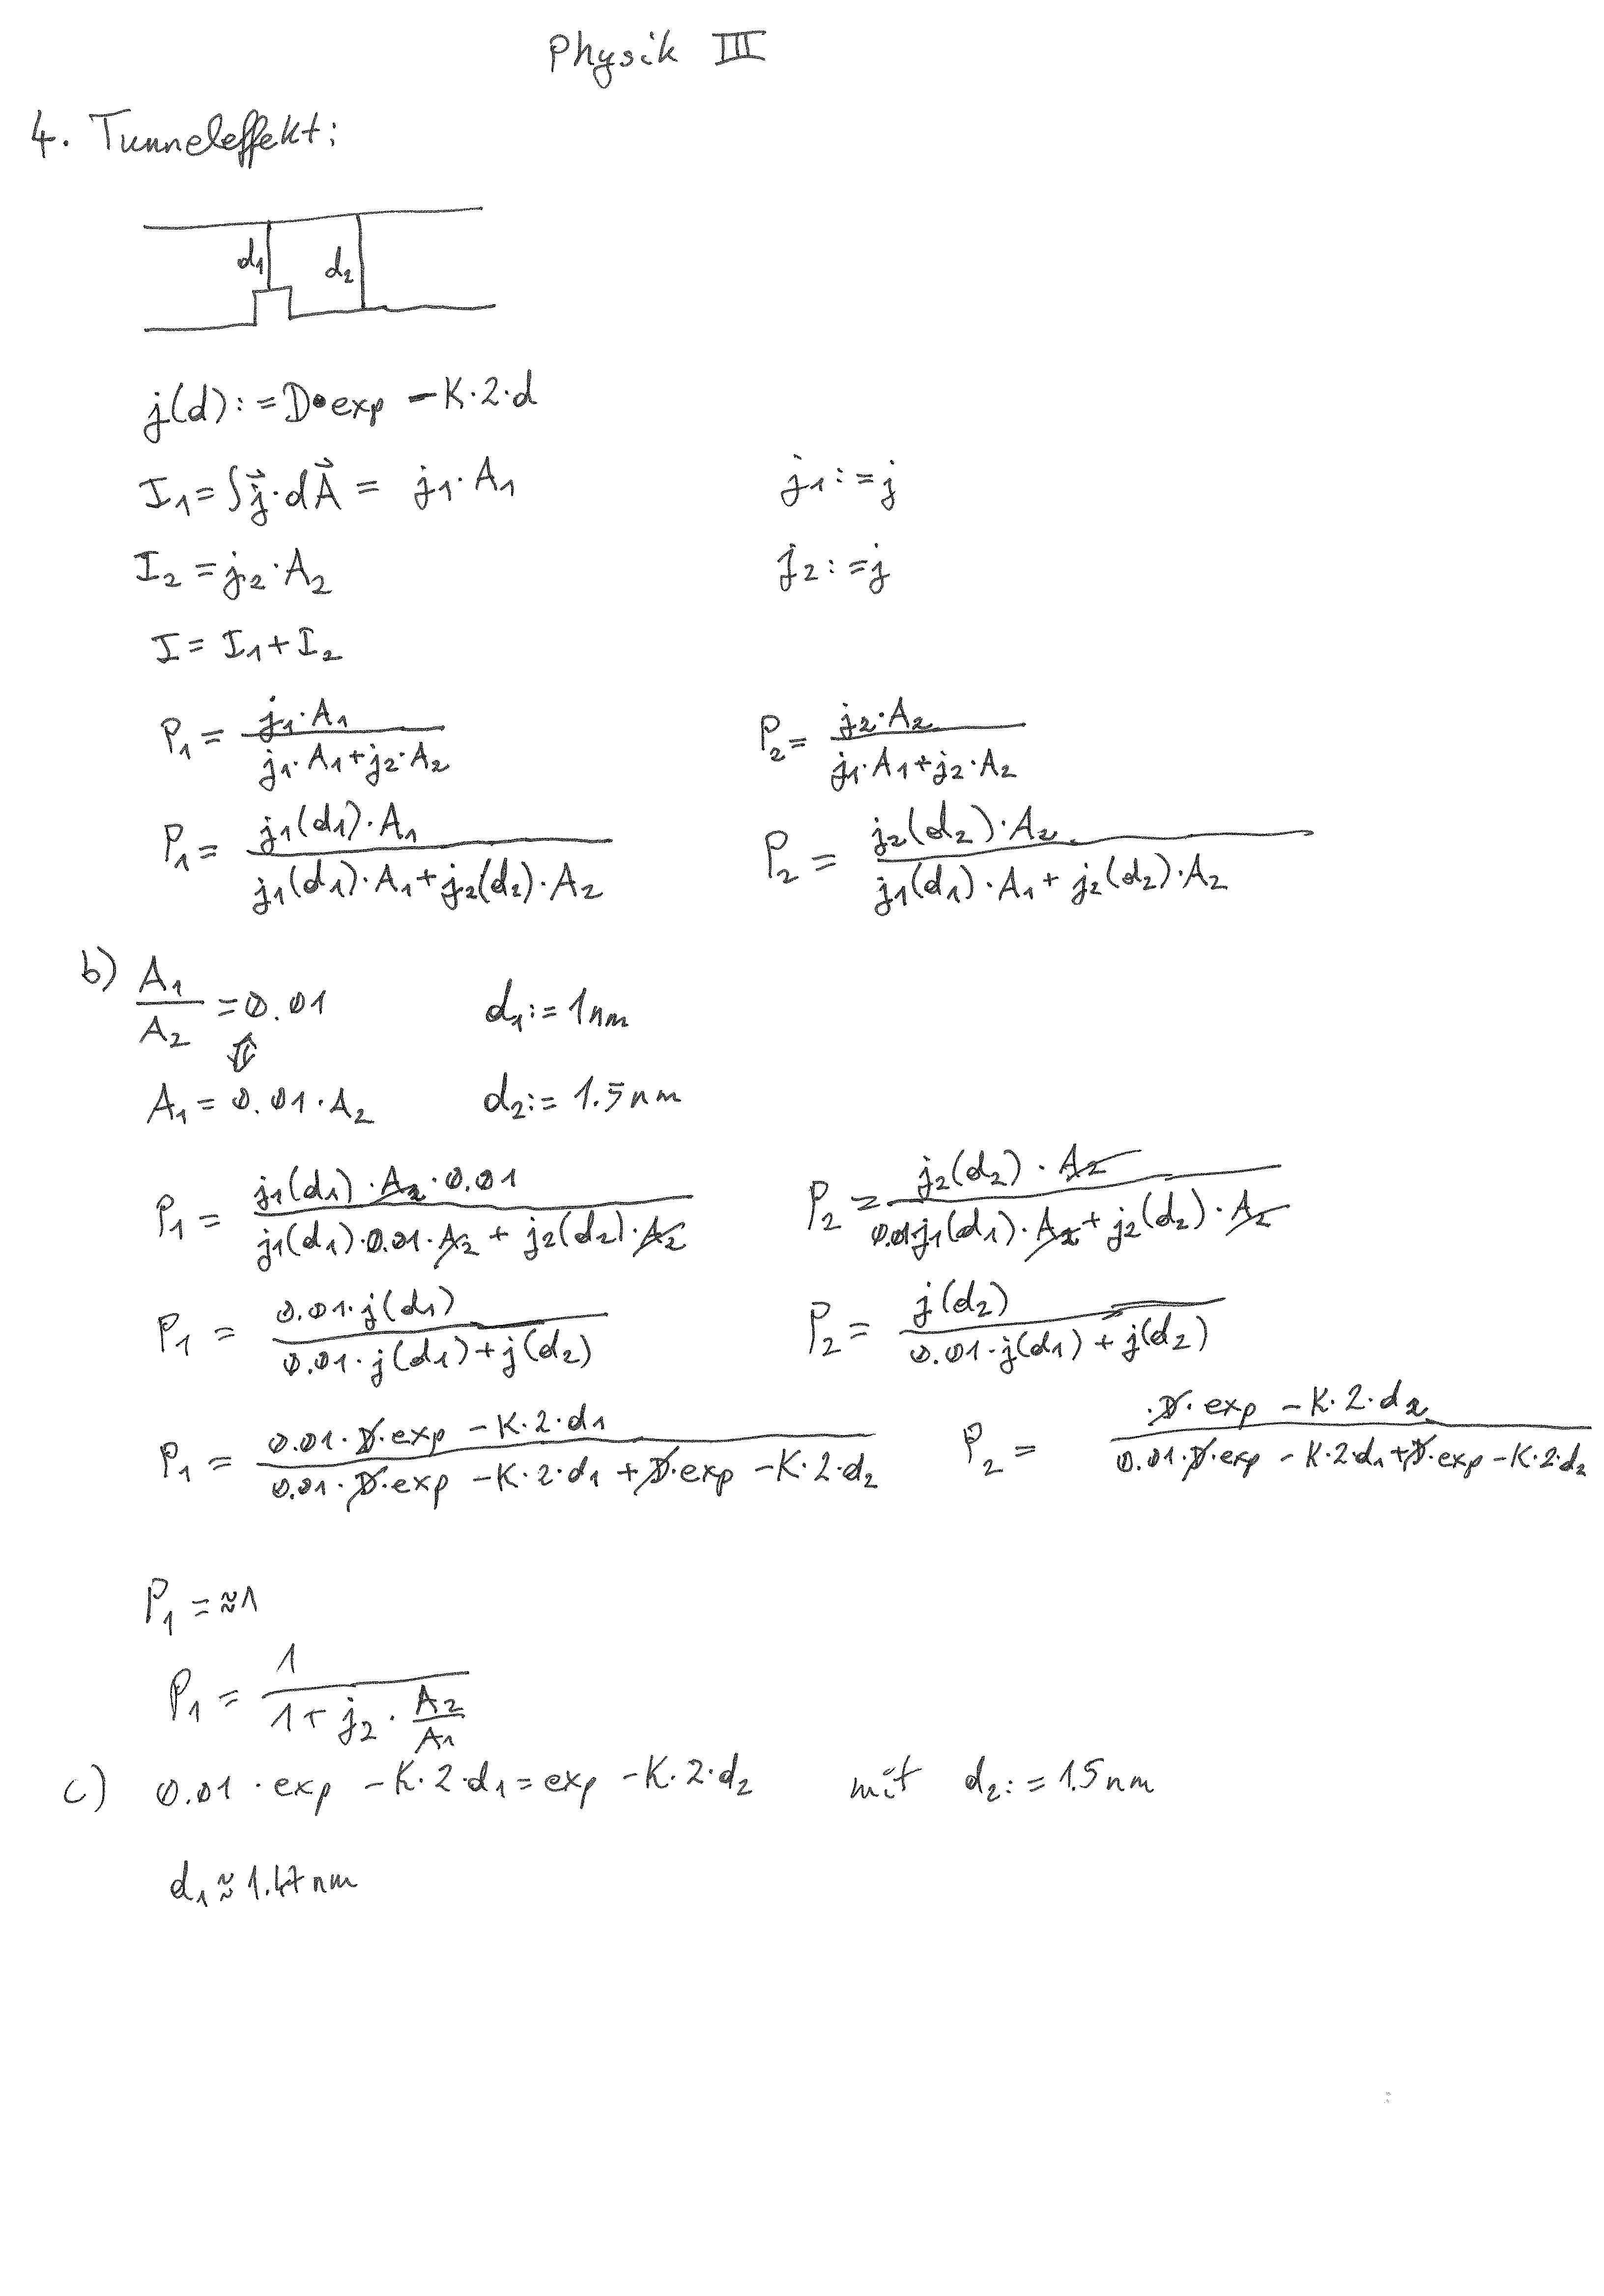 Physik III
4. Tunneleffekt:
d₁ d₂
j(d) := D·exp -K·2·d
I₁ = ∫j⃗·dA⃗ = j₁·A₁ j₁ := j
I₂ = j₂·A₂ j₂ := j
I = I₁ + I₂
P₁ = (j₁·A₁)/(j₁·A₁+j₂·A₂) P₂ = (j₂·A₂)/(j₁·A₁+j₂·A₂)
P₁ = (j₁(d₁)·A₁)/(j₁(d₁)·A₁+j₂(d₂)·A₂) P₂ = (j₂(d₂)·A₂)/(j₁(d₁)·A₁+j₂(d₂)·A₂)
b) A₁/A₂ = 0.01 d₁ := 1nm
⇕
A₁ = 0.01·A₂ d₂ := 1.5nm
P₁ = (j₁(d₁)·A₂·0.01)/(j₁(d₁)·0.01·A₂ + j₂(d₂)·A₂) P₂ = (j₂(d₂)·A₂)/(0.01j₁(d₁)·A₂+j₂(d₂)·A₂)
P₁ = (0.01·j(d₁))/(0.01·j(d₁)+j(d₂)) P₂ = (j(d₂))/(0.01·j(d₁)+j(d₂))
P₁ = (0.01·D·exp -K·2·d₁)/(0.01·D·exp -K·2·d₁+D·exp -K·2·d₂) P₂ = (·D·exp -K·2·d₂)/(0.01·D·exp -K·2·d₁+D·exp -K·2·d₂)
P₁ = ≈1
P₁ = 1/(1+j₂·A₂/A₁)
c) 0.01·exp -K·2·d₁ = exp -K·2·d₂ mit d₂ := 1.5nm
d₁ ≈ 1.47nm